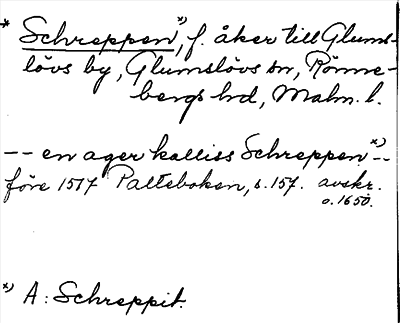 * Schreppen*), f. åker till Glums-
lövs by, Glumslövs sn, Rönne-
bergs hd, Malm. l.
-- en ager kalliss Schreppen*) --
före 1517 Palteboken, s. 157. avskr.
o. 1650.
*) A: Schreppit.